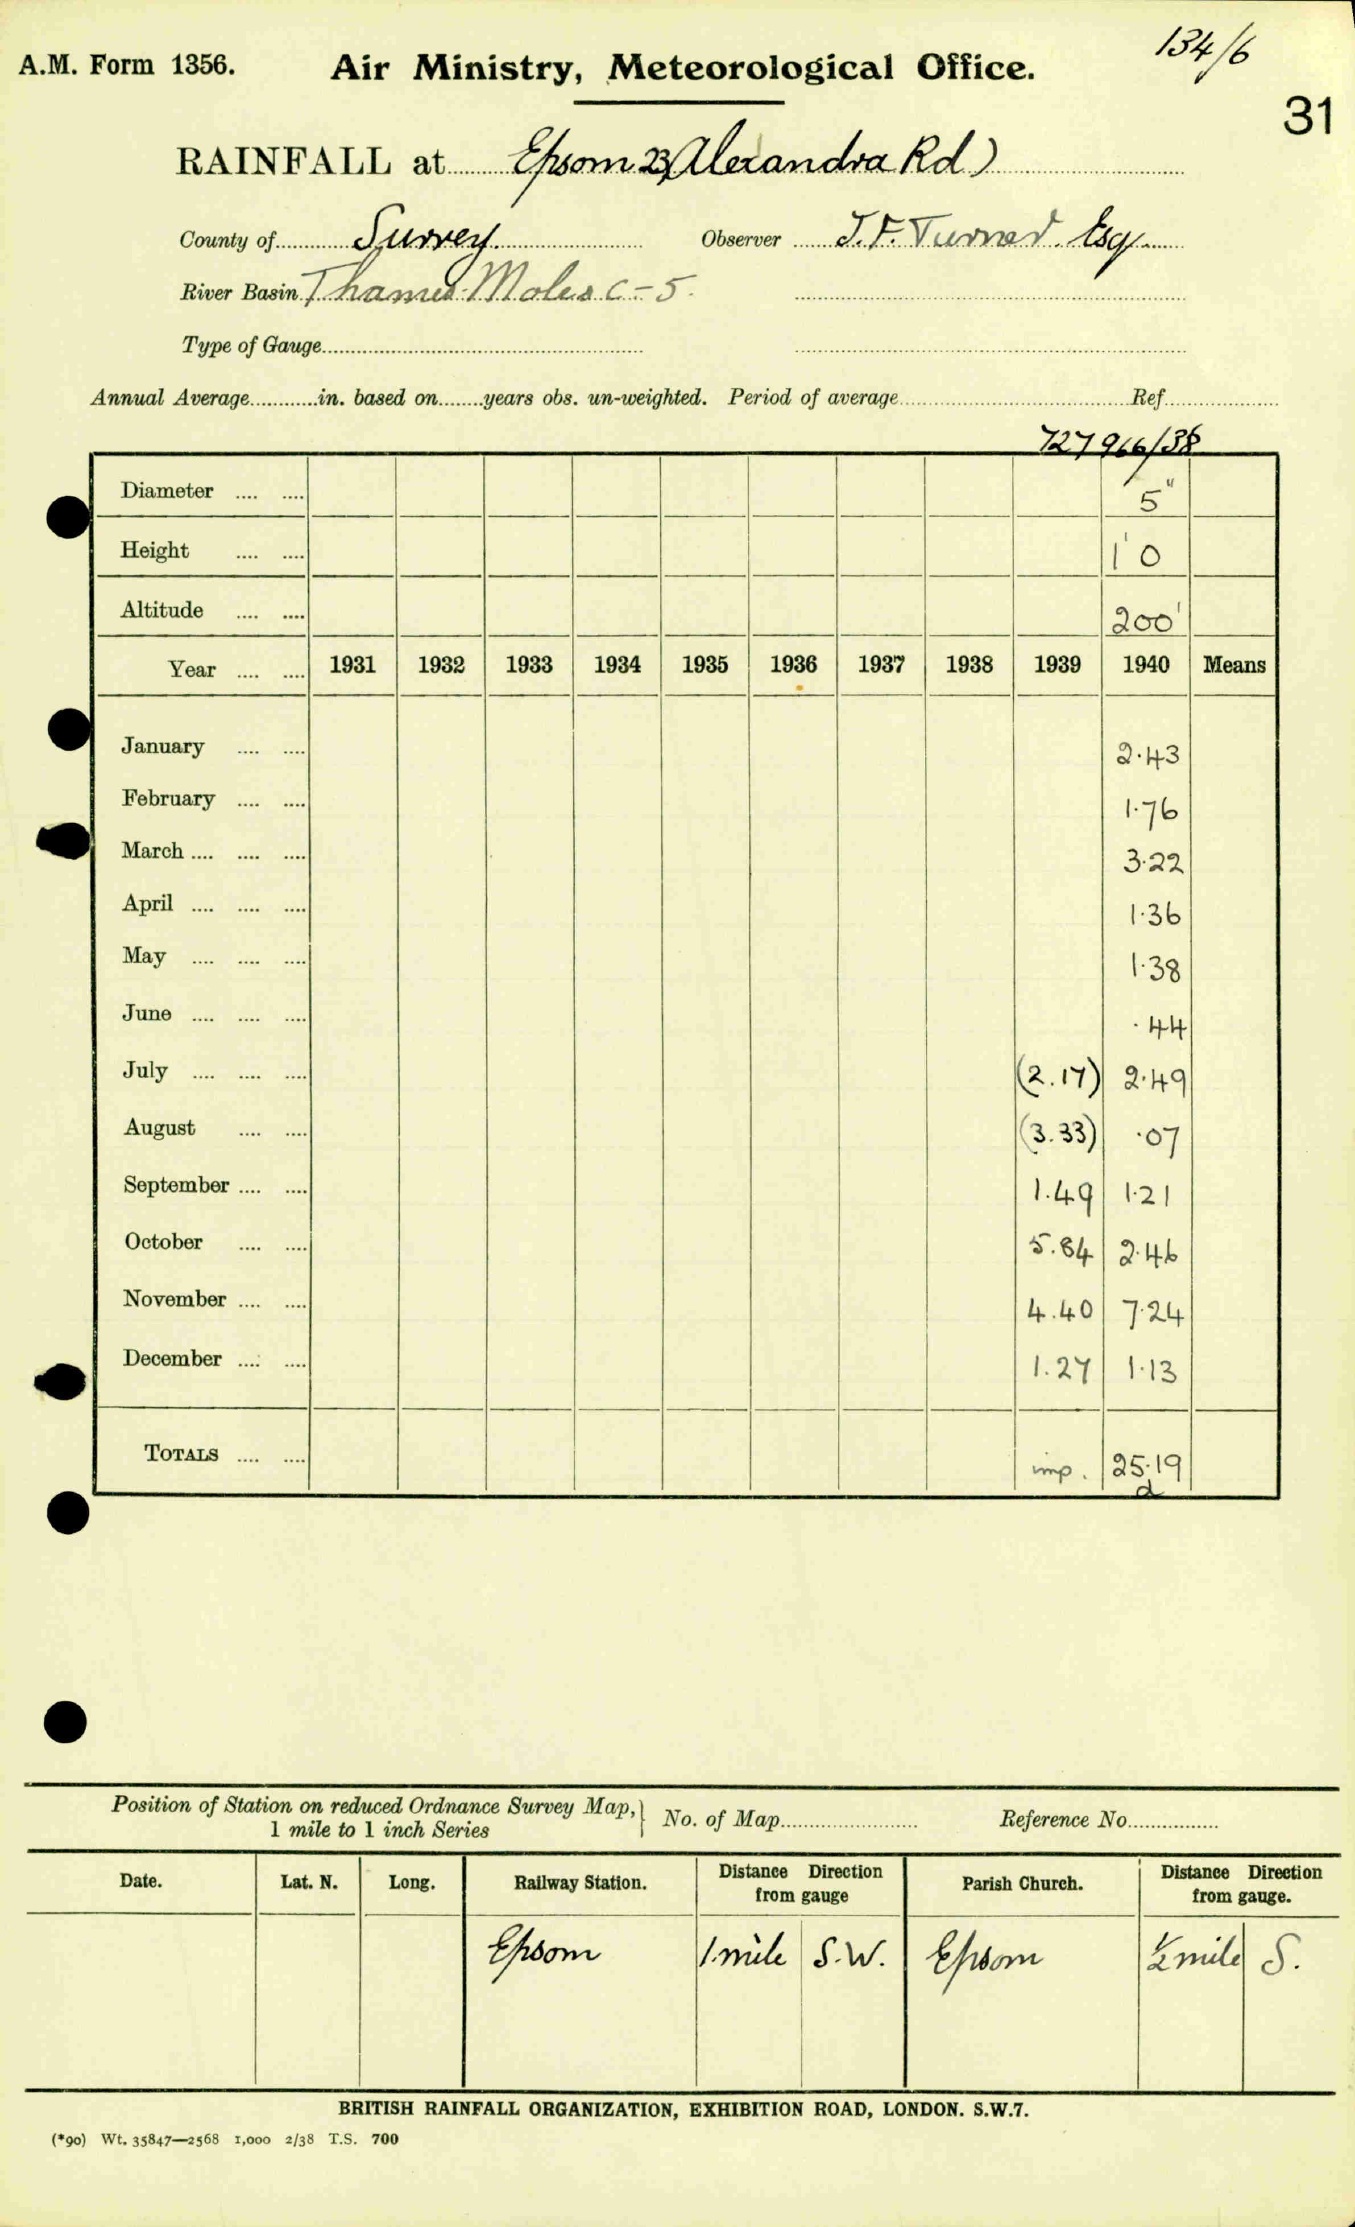 134/6
A.M. Form 1356. Air Ministry, Meteorological Office.
31
RAINFALL at Epsom 23, Alexandra Rd)
County of Surrey. Observer J. F. Turner. Esq.
River Basin Thames-Moles C-5.
Type of Gauge
Annual Average in. based on years obs. un-weighted. Period of average Ref
727 966/38
Diameter 5"
Height 1' 0
Altitude 200'
Year 1931 1932 1933 1934 1935 1936 1937 1938 1939 1940 Means
January 2.43
February 1.76
March 3.22
April 1.36
May 1.38
June .44
July (2.17) 2.49
August (3.33) .07
September 1.49 1.21
October 5.84 2.46
November 4.40 7.24
December 1.27 1.13
TOTALS imp. 25.19
d
Position of Station on reduced Ordnance Survey Map, 1 mile to 1 inch Series } No. of Map Reference No
Date. Lat. N. Long. Railway Station. Distance Direction from gauge Parish Church. Distance Direction from gauge.
Epsom 1 mile S.W. Epsom ½ mile S.
BRITISH RAINFALL ORGANIZATION, EXHIBITION ROAD, LONDON. S.W.7.
(*90) Wt. 35847—2568 1,000 2/38 T.S. 700